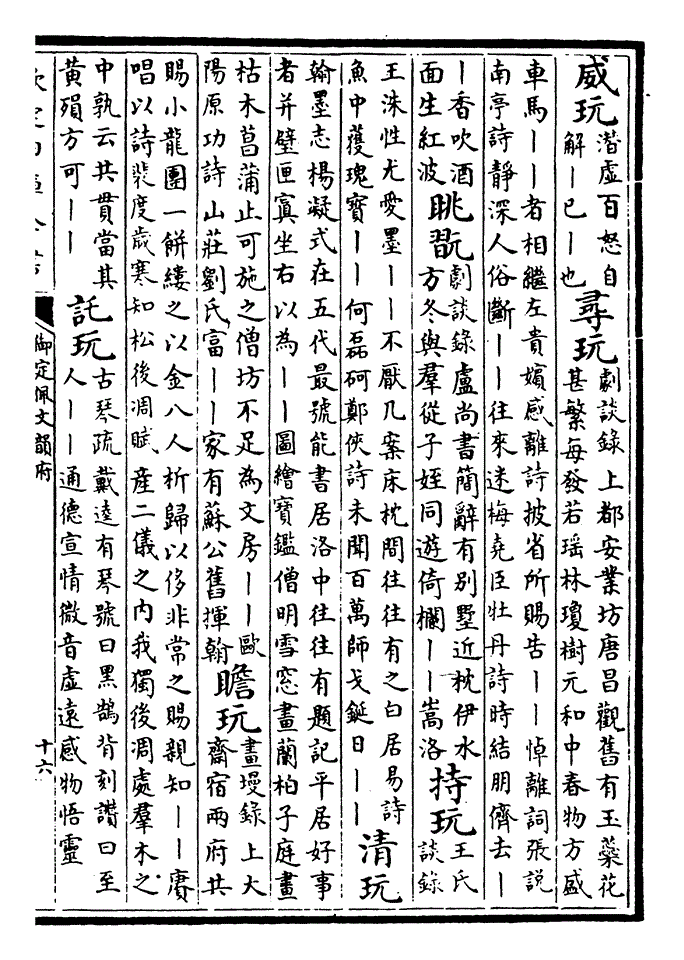 威玩
潛虛百怒自
解｜已｜也
尋玩
劇談錄上都安業坊唐昌觀舊有玉蘂花
甚繁每發若瑶林瓊樹元和中春物方盛
車馬｜｜者相繼左貴嬪感離詩披省所賜告｜｜悼離詞張説
南亭詩靜深人俗斷｜｜往來迷梅堯臣牡丹詩時結朋儕去｜
｜香吹酒
面生紅波
眺翫
劇談錄盧尚書簡辭有别墅近枕伊水
方冬與羣從子姪同遊倚欄｜｜嵩洛
持玩
王氏
談錄
王洙性尤愛墨｜｜不厭几案床枕間往往有之白居易詩
魚中獲瑰寶｜｜何磊砢鄭俠詩未聞百萬師戈鋋日｜｜
清玩
翰墨志楊凝式在五代最號能書居洛中往往有題記平居好事
者并壁匣寘坐右以為｜｜圖繪寶鑑僧明雪窓畫蘭柏子庭畫
枯木菖蒲止可施之僧坊不足為文房｜｜歐
陽原功詩山莊劉氏富｜｜家有蘇公舊揮翰
瞻玩
畫墁錄上大
齋宿兩府共
賜小龍團一餅縷之以金八人析歸以侈非常之賜親知｜｜賡
唱以詩裴度歲寒知松後凋賦産二儀之内我獨後凋處羣木之
中孰云共貫當其
黄殞方可｜｜
託玩
古琴疏戴逵有琴號曰黑鵠背刻讚曰至
人｜｜通德宣情微音虛遠感物悟靈
御定佩文韻府
十六